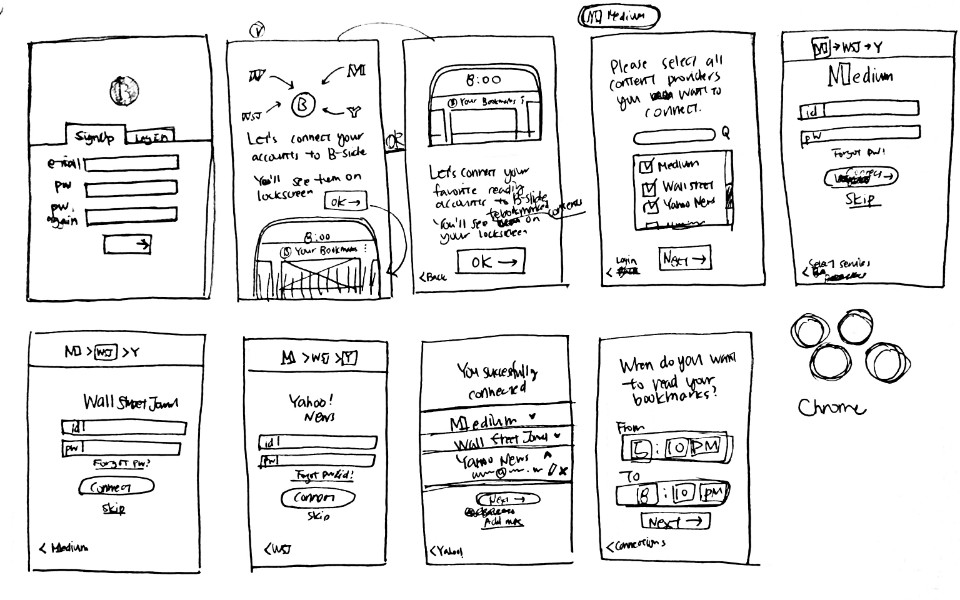 M Medium
B
SignUp
LogIn
e-mail
pw
pw
again
→
V
W
M
WSJ
B
Y
Let's connect your
accounts to B-Side
You'll see them on
lockscreen
OK →
8:00
B Your Bookmarks
OR
8:00
B Your Bookmarks
Let's connect your
favorite reading
accounts to B-Slide
You'll see bookmarked contents on
your lockscreen
OK →
< Back
Please select all
content providers
you want to
connect.
Q
Medium
Wall street
Yahoo News
Next →
< Login
M → WSJ → Y
Medium
id
pw
Forgot pw!
Connect →
Skip
< Select Services
M > WSJ > Y
Wall Street Journal
id
pw
Forgot pw?
Connect
Skip
< Medium
M > WSJ > Y
Yahoo!
News
id
pw
Connect
Skip
< WSJ
You succesfully
connected
Medium
Wall Street Journal
Yahoo News
Next →
Add more
< Yahoo!
When do you want
to read your
bookmarks?
From
5 : 10 PM
To
8 : 10 PM
Next →
< Connections
Chrome